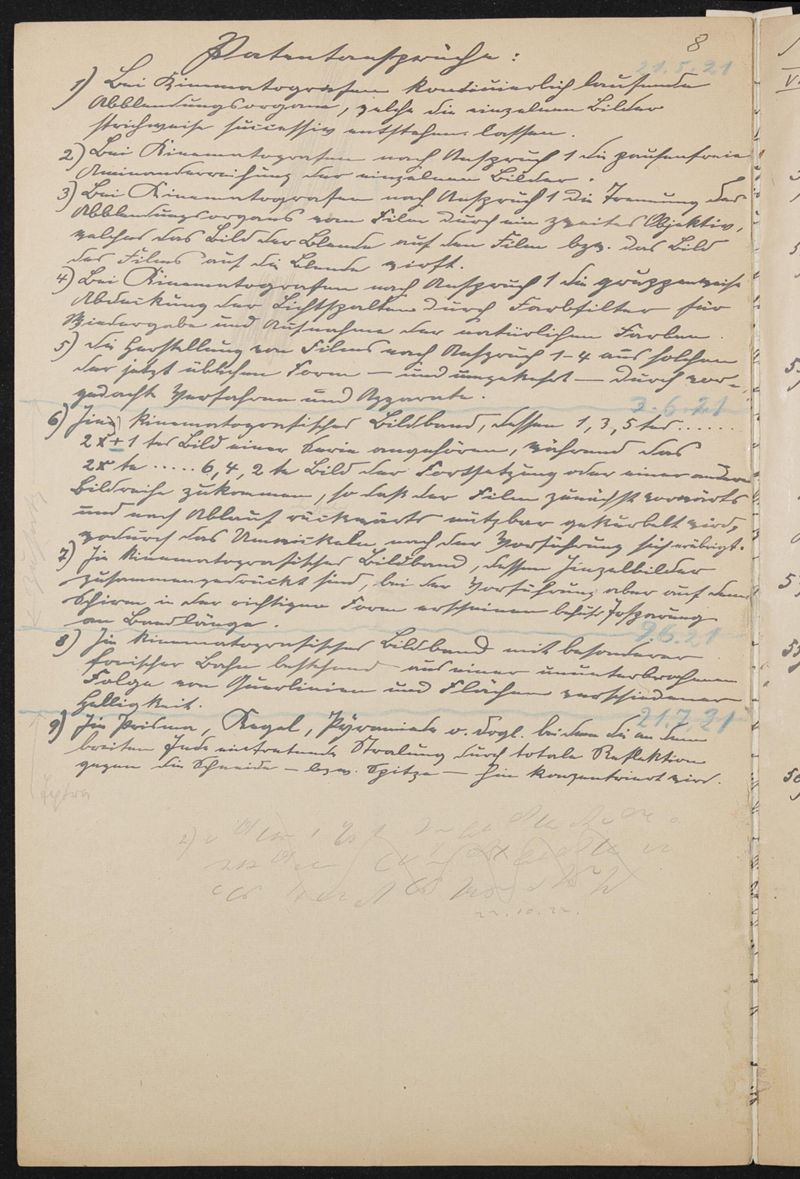 8
Patentansprüche:
21.5.21
1) Bei Kinematografen kontinuierlich laufende
Abblendungsorgane, welche die einzelnen Bilder
strichweise successiv entstehen lassen.
2) Bei Kinematografen nach Anspruch 1 die pausenfreie
Aneinanderreihung der einzelnen Bilder.
3) Bei Kinematografen nach Anspruch 1 die Trennung des
Abblendungsorgans vom Film durch ein zweites Objektiv,
welches das Bild der Blende auf den Film bzw. das Bild
des Films auf die Blende wirft.
4) Bei Kinematografen nach Anspruch 1 die gruppenweise
Abdeckung der Lichtspalten durch Farbfilter für
Wiedergabe und Aufnahme der natürlichen Farben.
5) Die Herstellung von Films nach Anspruch 1-4 aus solchen
der jetzt üblichen Form – und umgekehrt – durch vor-
gedachte Verfahren und Apparate.
3.6.21
6) Ein kinematografisches Bildband, dessen 1, 3, 5 tes ......
2x+1 tes Bild einer Serie angehören, während das
2x te ..... 6, 4, 2 te Bild der Fortsetzung oder einer andern
Bildreihe zukommen, so daß der Film zunächst vorwärts
und nach Ablauf rückwärts nutzbar gekurbelt wird,
wodurch das Umwickeln nach der Vorführung sich erübrigt.
7) Ein kinematografisches Bildband, dessen Einzelbilder
zusammengedrückt sind, bei der Vorführung aber auf dem
Schirm in der richtigen Form erscheinen behufs Ersparung
an Bandlänge.
9.6.21
8) Ein kinematografisches Bildband mit besonderer
fonischer Bahn bestehend aus einer ununterbrochenen
Folge von Querlinien und Flächen verschiedener
Helligkeit.
21.7.21
9) Ein Prisma, Kegel, Pyramide o. drgl. bei dem die an dem
breiten Ende eintretende Stralung durch totale Reflektion
gegen die Schneide – bzw. Spitze – hin konzentriert wird.
22.10.22.